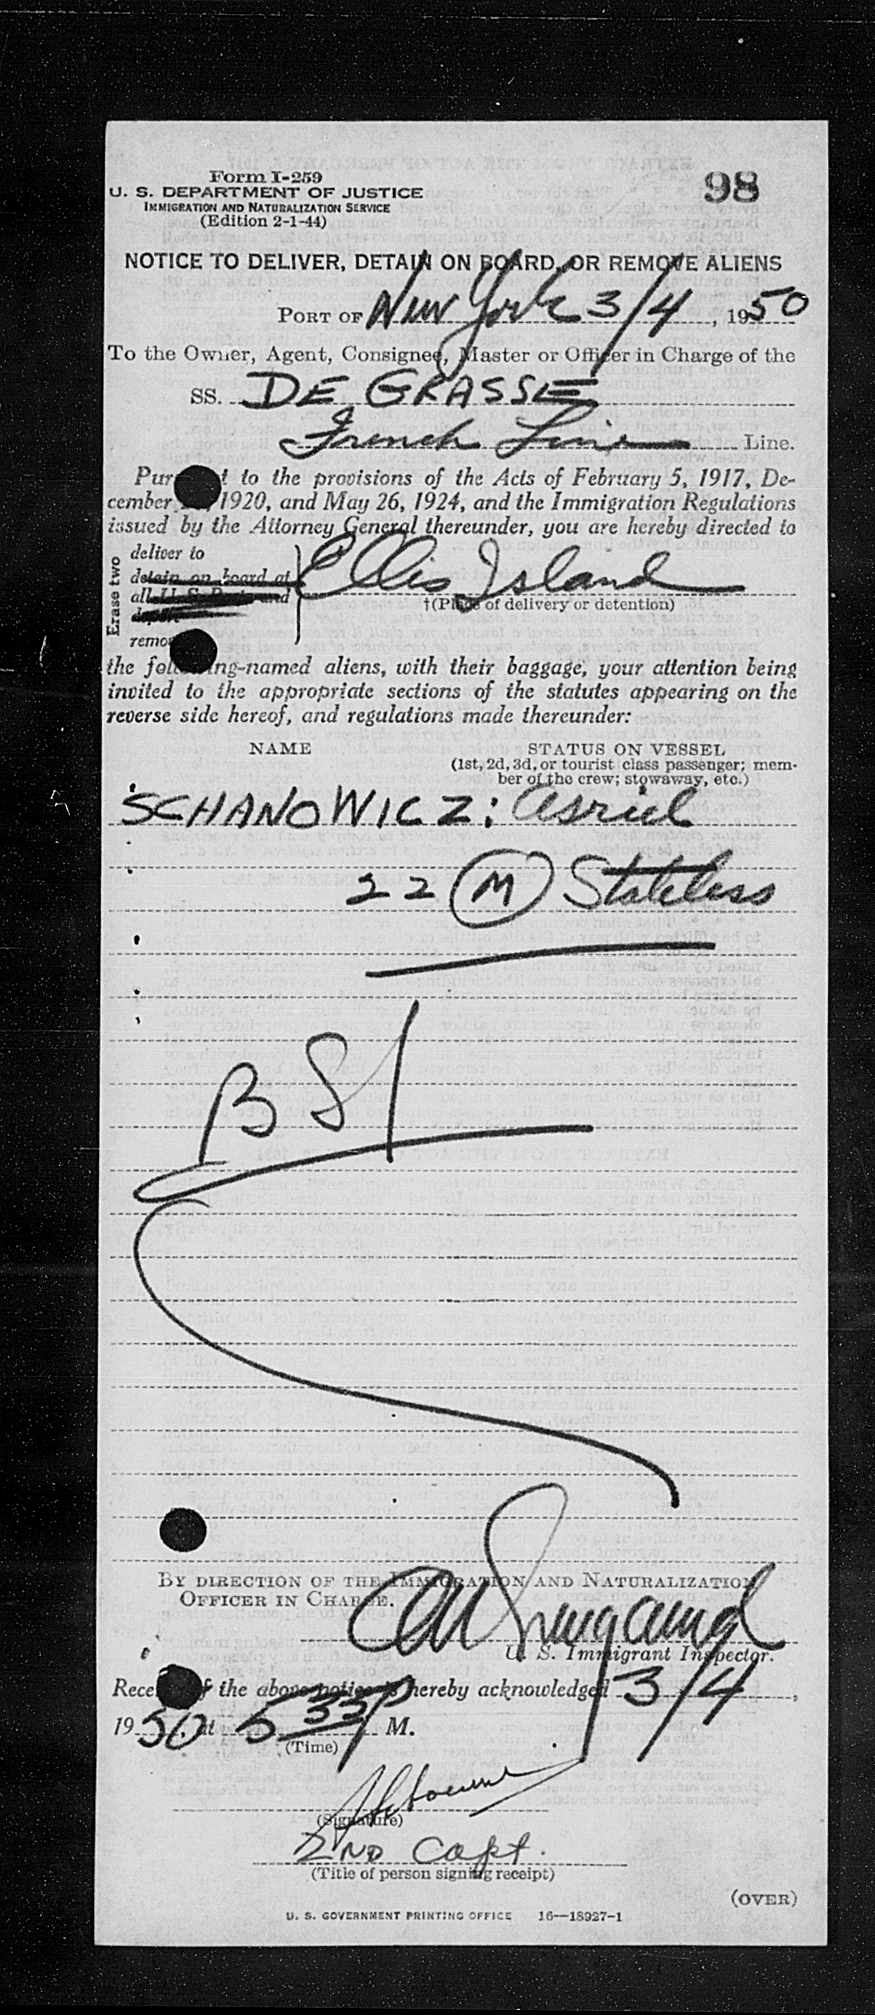 Form I-259
98
U. S. DEPARTMENT OF JUSTICE
IMMIGRATION AND NATURALIZATION SERVICE
(Edition 2-1-44)
NOTICE TO DELIVER, DETAIN ON BOARD, OR REMOVE ALIENS
PORT OF New York 3/4, 1950
To the Owner, Agent, Consignee, Master or Officer in Charge of the
SS. DE GRASSE
French Line Line.
to the provisions of the Acts of February 5, 1917, De-
cember 1920, and May 26, 1924, and the Immigration Regulations
issued by the Attorney General thereunder, you are hereby directed to
Erase two
deliver to
detain on board at
all U. S. Ports and
Ellis Island
†(Place of delivery or detention)
the following-named aliens, with their baggage, your attention being
invited to the appropriate sections of the statutes appearing on the
reverse side hereof, and regulations made thereunder:
NAME STATUS ON VESSEL
(1st, 2d, 3d, or tourist class passenger; mem-
ber of the crew; stowaway, etc.)
SCHANOWICZ: Asriel
22 M Stateless
BSI
BY DIRECTION OF THE IMMIGRATION AND NATURALIZATION
OFFICER IN CHARGE.
U. S. Immigrant Inspector.
the above notice is hereby acknowledged 3/4,
1950 at 5 35 P M.
(Time)
(Signature)
2ND Capt.
(Title of person signing receipt)
(OVER)
U. S. GOVERNMENT PRINTING OFFICE 16—18927-1